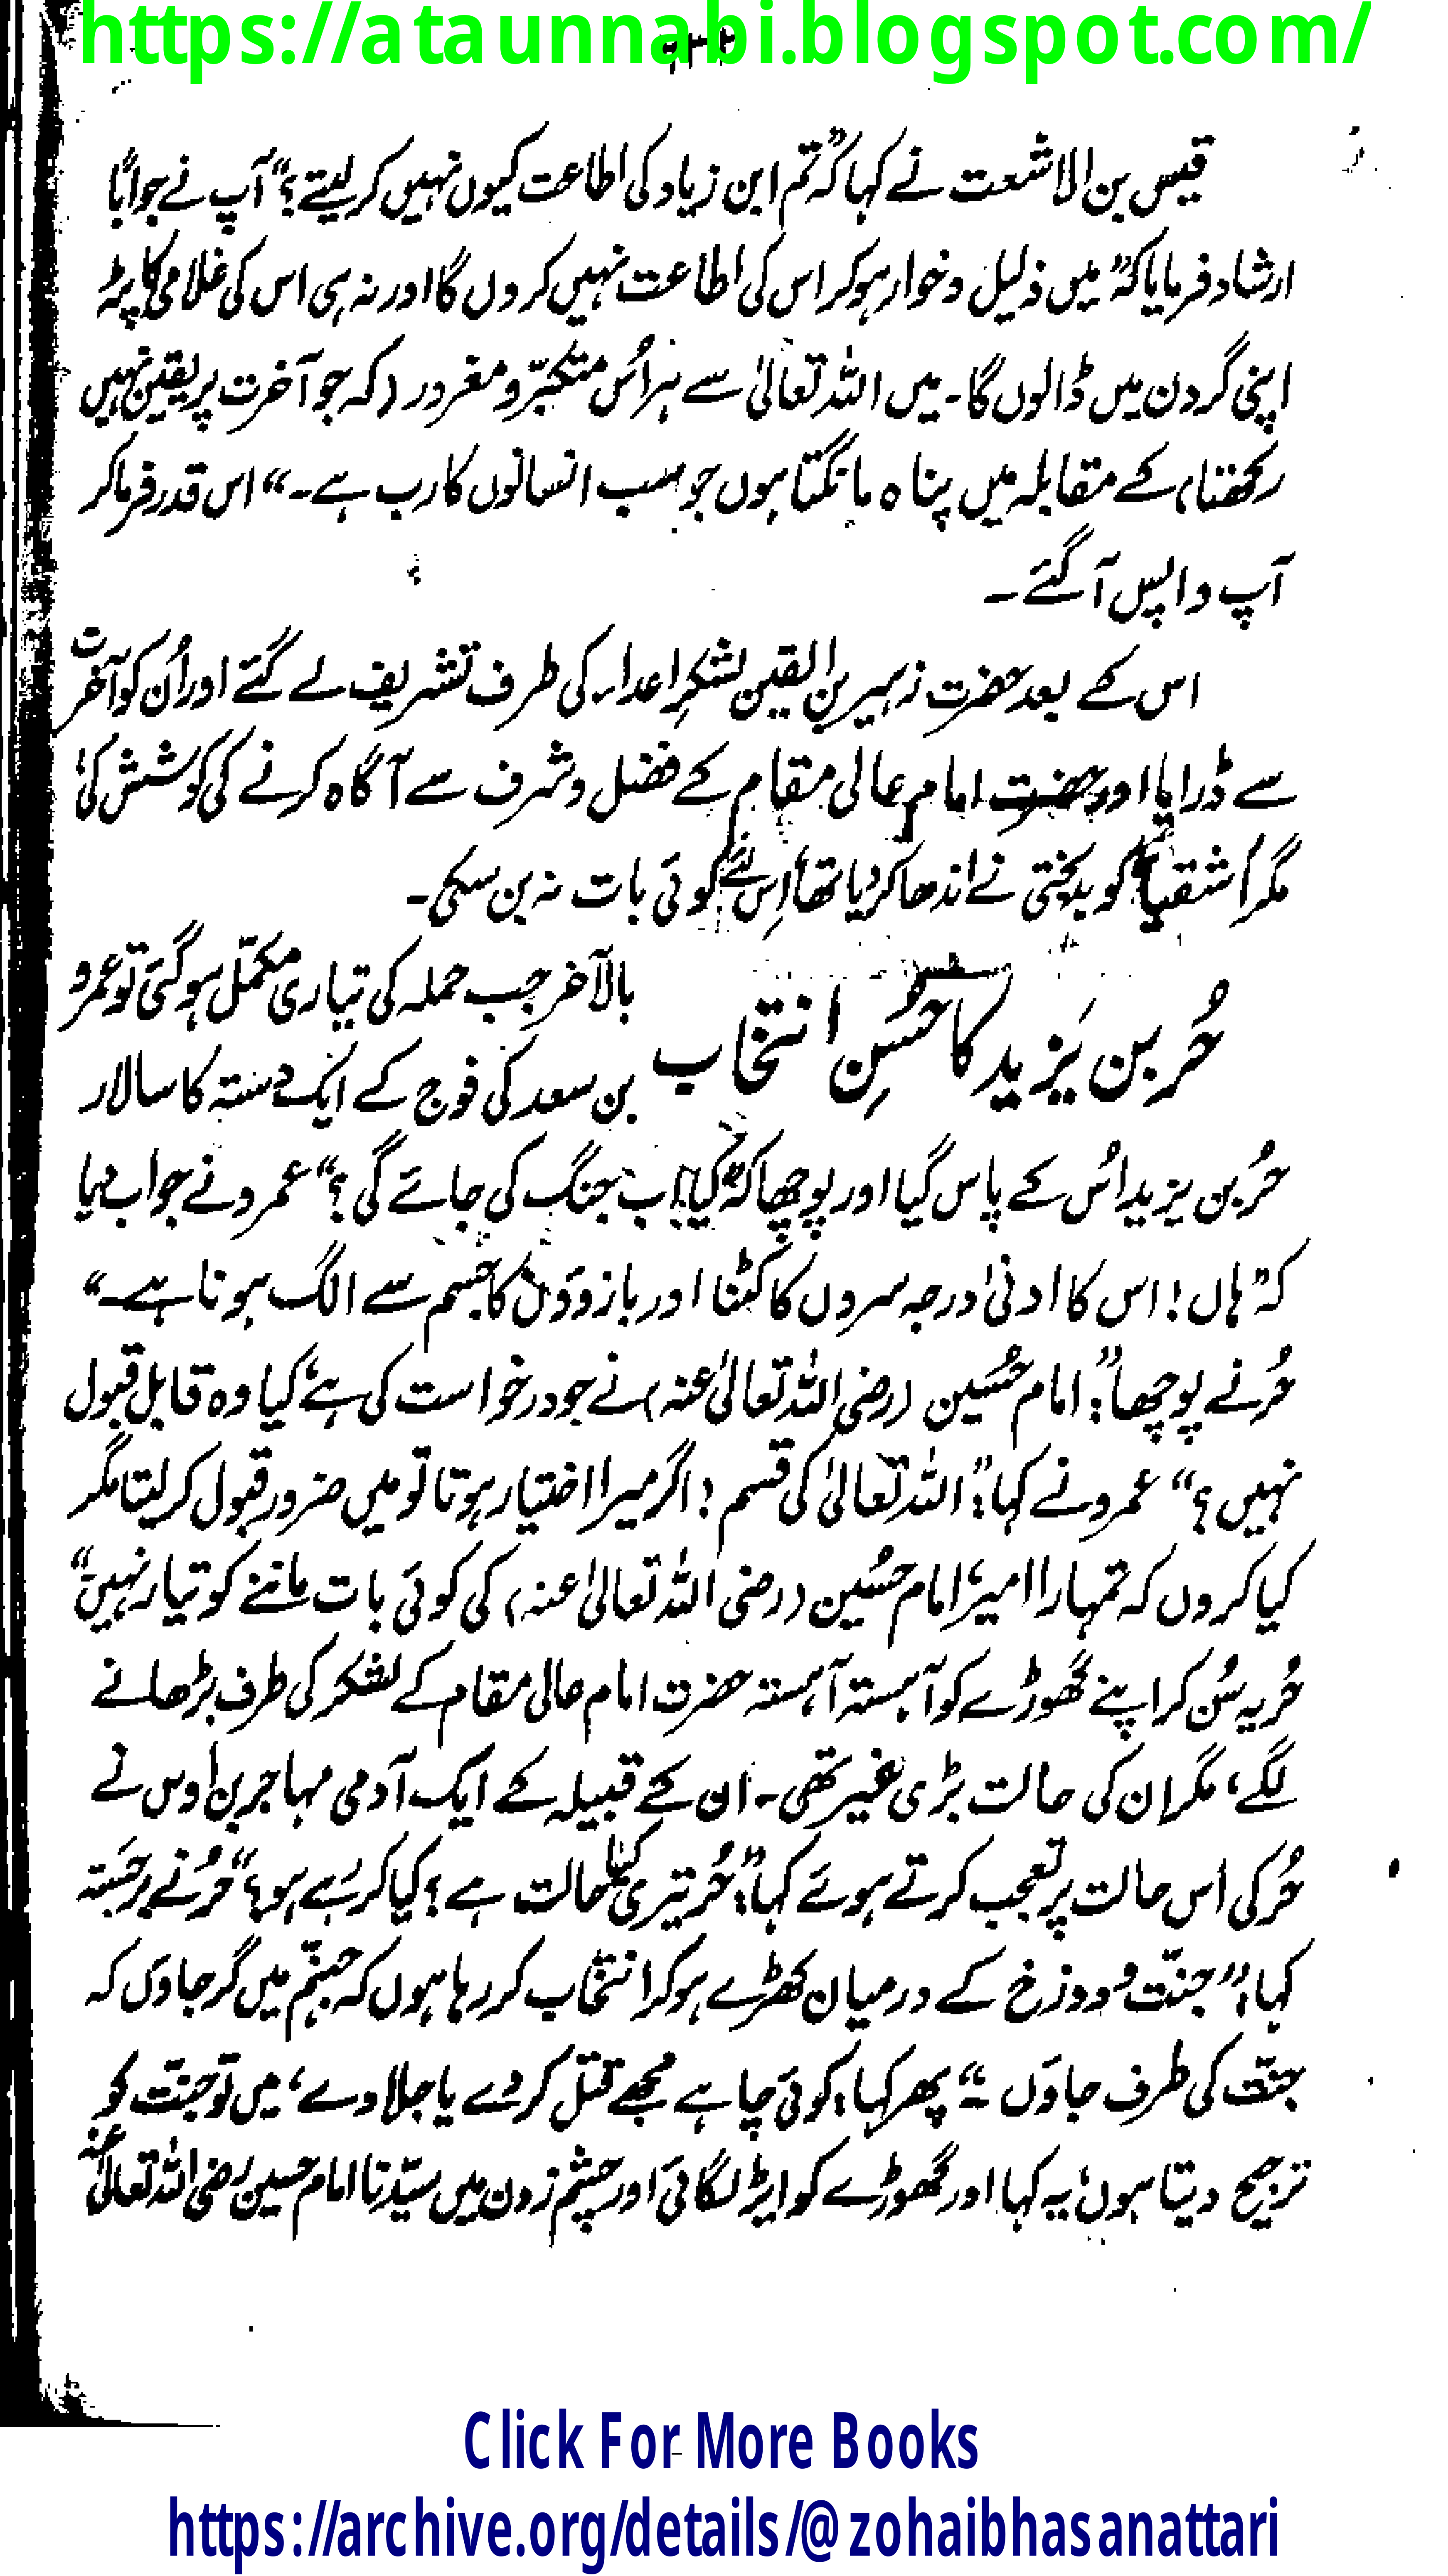 https://ataunnabi.blogspot.com/
قیس بن الاشعت نے کہا کہ ”تم ابن زیاد کی اطاعت کیوں نہیں کر لیتے؟“ آپ نے جواباً
ارشاد فرمایا کہ ”میں ذلیل و خوار ہو کر اس کی اطاعت نہیں کروں گا اور نہ ہی اس کی غلامی کا پٹہ
اپنی گردن میں ڈالوں گا۔ میں اللہ تعالیٰ سے ہر اُس متکبّر و مغرور (کہ جو آخرت پر یقین نہیں
رکھتا) کے مقابلہ میں پناہ مانگتا ہوں جو سب انسانوں کا رب ہے۔“ اس قدر فرما کر
آپ واپس آ گئے۔
اس کے بعد حضرت زہیر بن القین لشکرِ اعداء کی طرف تشریف لے گئے اور اُن کو آخرت
سے ڈرایا اور حضرت امام عالی مقام کے فضل و شرف سے آگاہ کرنے کی کوشش کی‘
مگر اشقیا کو بدبختی نے اندھا کر دیا تھا‘ اِس لئے کوئی بات نہ بن سکی۔
حُر بن یَزید کا حُسنِ انتخاب
بالآخر جب حملہ کی تیاری مکمّل ہو گئی تو عمرو
بن سعد کی فوج کے ایک دستہ کا سالار
حُر بن یزید اُس کے پاس گیا اور پوچھا کہ ”کیا اب جنگ کی جائے گی؟“ عمرو نے جواب دیا
کہ ”ہاں! اس کا ادنیٰ درجہ سروں کا کٹنا اور بازوؤں کا جسم سے الگ ہونا ہے۔“
حُر نے پوچھا: ”امام حُسین (رضی اللہ تعالیٰ عنہ) نے جو درخواست کی ہے‘ کیا وہ قابلِ قبول
نہیں؟“ عمرو نے کہا: ”اللہ تعالیٰ کی قسم! اگر میرا اختیار ہوتا تو میں ضرور قبول کر لیتا مگر
کیا کروں کہ تمہارا امیر‘ امام حسُین (رضی اللہ تعالیٰ عنہ) کی کوئی بات ماننے کو تیار نہیں“
حُر یہ سُن کر اپنے گھوڑے کو آہستہ آہستہ حضرت امام عالی مقام کے لشکر کی طرف بڑھانے
لگے‘ مگر ان کی حالت بڑی غیر تھی۔ ان کے قبیلہ کے ایک آدمی مہاجر بن اوس نے
حُر کی اس حالت پر تعجب کرتے ہوئے کہا: ”حُر تیری کیا حالت ہے؟ کیا کر رہے ہو؟“ حُر نے برجَستہ
کہا: ”جنّت و دوزخ کے درمیان کھڑے ہو کر انتخاب کر رہا ہوں کہ جہنّم میں گر جاؤں کہ
جنّت کی طرف جاؤں۔“ پھر کہا: کوئی چاہے مجھے قتل کر دے یا جلا دے‘ میں تو جنّت کو
ترجیح دیتا ہوں‘ یہ کہا اور گھوڑے کو ایڑ لگائی اور چشم زدن میں سیّدنا امام حسین رضی اللہ تعالیٰ عنہ
Click For More Books
https://archive.org/details/@zohaibhasanattari